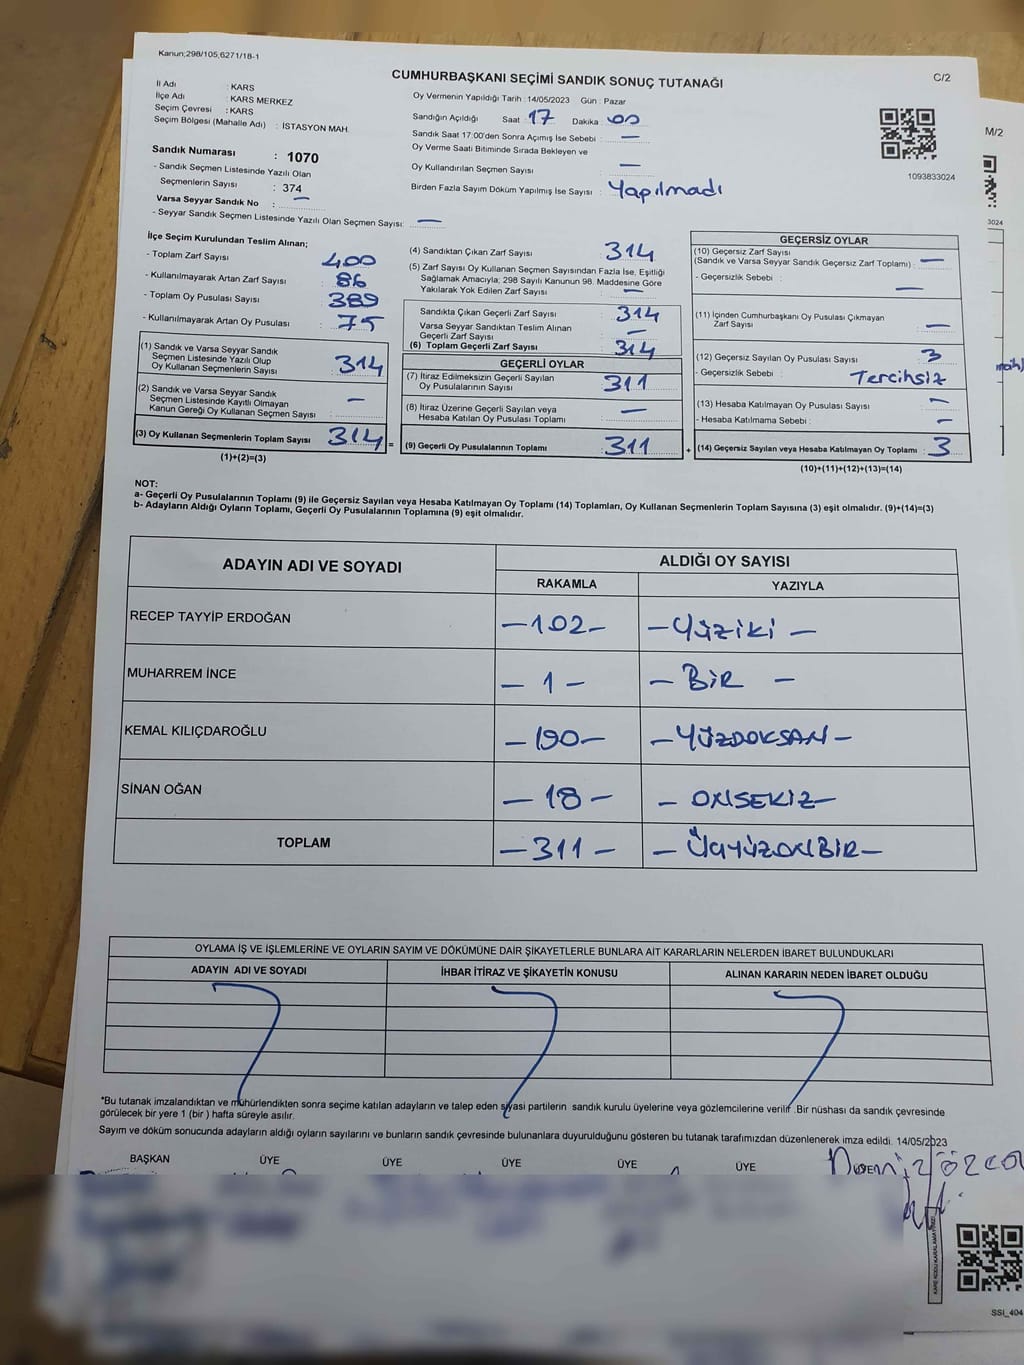 Kanun;298/105;6271/18-1
C/2
CUMHURBAŞKANI SEÇİMİ SANDIK SONUÇ TUTANAĞI
İl Adı : KARS
İlçe Adı : KARS MERKEZ
Seçim Çevresi : KARS
Seçim Bölgesi (Mahalle Adı) : İSTASYON MAH.
Sandık Numarası : 1070
- Sandık Seçmen Listesinde Yazılı Olan
Seçmenlerin Sayısı : 374
Varsa Seyyar Sandık No : —
- Seyyar Sandık Seçmen Listesinde Yazılı Olan Seçmen Sayısı: —
Oy Vermenin Yapıldığı Tarih :14/05/2023 Gün : Pazar
Sandığın Açıldığı Saat 17 Dakika 00
Sandık Saat 17:00'den Sonra Açımış İse Sebebi : —
Oy Verme Saati Bitiminde Sırada Bekleyen ve
Oy Kullandırılan Seçmen Sayısı : —
Birden Fazla Sayım Döküm Yapılmış İse Sayısı : Yapılmadı
1093833024
M/2
3024
İlçe Seçim Kurulundan Teslim Alınan;
- Toplam Zarf Sayısı : 400
- Kullanılmayarak Artan Zarf Sayısı : 86
- Toplam Oy Pusulası Sayısı : 389
- Kullanılmayarak Artan Oy Pusulası : 75
(1) Sandık ve Varsa Seyyar Sandık
Seçmen Listesinde Yazılı Olup
Oy Kullanan Seçmenlerin Sayısı : 314
(2) Sandık ve Varsa Seyyar Sandık
Seçmen Listesinde Kayıtlı Olmayan
Kanun Gereği Oy Kullanan Seçmen Sayısı : —
(3) Oy Kullanan Seçmenlerin Toplam Sayısı : 314 =
(1)+(2)=(3)
(4) Sandıktan Çıkan Zarf Sayısı : 314
(5) Zarf Sayısı Oy Kullanan Seçmen Sayısından Fazla İse, Eşitliği
Sağlamak Amacıyla; 298 Sayılı Kanunun 98. Maddesine Göre
Yakılarak Yok Edilen Zarf Sayısı : —
Sandıkta Çıkan Geçerli Zarf Sayısı : 314
Varsa Seyyar Sandıktan Teslim Alınan
Geçerli Zarf Sayısı : —
(6) Toplam Geçerli Zarf Sayısı : 314
GEÇERLİ OYLAR
(7) İtiraz Edilmeksizin Geçerli Sayılan
Oy Pusulalarının Sayısı : 311
(8) İtiraz Üzerine Geçerli Sayılan veya
Hesaba Katılan Oy Pusulası Toplamı : —
(9) Geçerli Oy Pusulalarının Toplamı : 311 +
GEÇERSİZ OYLAR
(10) Geçersiz Zarf Sayısı
(Sandık ve Varsa Seyyar Sandık Geçersiz Zarf Toplamı) : —
- Geçersizlik Sebebi : —
(11) İçinden Cumhurbaşkanı Oy Pusulası Çıkmayan
Zarf Sayısı : —
(12) Geçersiz Sayılan Oy Pusulası Sayısı : 3
- Geçersizlik Sebebi : Tercihsiz
(13) Hesaba Katılmayan Oy Pusulası Sayısı : —
- Hesaba Katılmama Sebebi : —
(14) Geçersiz Sayılan veya Hesaba Katılmayan Oy Toplamı : 3
(10)+(11)+(12)+(13)=(14)
NOT:
a- Geçerli Oy Pusulalarının Toplamı (9) ile Geçersiz Sayılan veya Hesaba Katılmayan Oy Toplamı (14) Toplamları, Oy Kullanan Seçmenlerin Toplam Sayısına (3) eşit olmalıdır. (9)+(14)=(3)
b- Adayların Aldığı Oyların Toplamı, Geçerli Oy Pusulalarının Toplamına (9) eşit olmalıdır.
ADAYIN ADI VE SOYADI
ALDIĞI OY SAYISI
RAKAMLA YAZIYLA
RECEP TAYYİP ERDOĞAN —102— —Yüziki—
MUHARREM İNCE —1— —BİR—
KEMAL KILIÇDAROĞLU —190— —YÜZDOKSAN—
SİNAN OĞAN —18— —ONSEKİZ—
TOPLAM —311— —ÜÇYÜZONBİR—
OYLAMA İŞ VE İŞLEMLERİNE VE OYLARIN SAYIM VE DÖKÜMÜNE DAİR ŞİKAYETLERLE BUNLARA AİT KARARLARIN NELERDEN İBARET BULUNDUKLARI
ADAYIN ADI VE SOYADI İHBAR İTİRAZ VE ŞİKAYETİN KONUSU ALINAN KARARIN NEDEN İBARET OLDUĞU
*Bu tutanak imzalandıktan ve mühürlendikten sonra seçime katılan adayların ve talep eden siyasi partilerin sandık kurulu üyelerine veya gözlemcilerine verilir. Bir nüshası da sandık çevresinde
görülecek bir yere 1 (bir ) hafta süreyle asılır.
Sayım ve döküm sonucunda adayların aldığı oyların sayılarını ve bunların sandık çevresinde bulunanlara duyurulduğunu gösteren bu tutanak tarafımızdan düzenlenerek imza edildi. 14/05/2023
BAŞKAN ÜYE ÜYE ÜYE ÜYE ÜYE
SSI_404